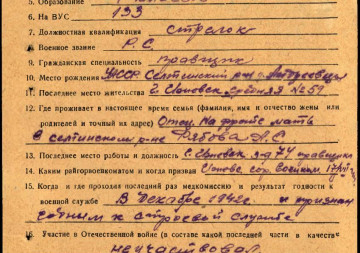 5. Образование
6. На ВУС 133
7. Должностная квалификация стрелок
8. Военное звание Р. С.
9. Гражданская специальность правщик
10. Место рождения УАССР Селтинский р-н д.
11. Последнее место жительства г. Ижевск средняя № 51
12. Где проживает в настоящее время семья (фамилия, имя и отчество жены или
родителей и точный их адрес) Отец на фронте мать
в Селтинском р-не Рябова А. С.
13. Последнее место работы и должность г. Ижевск з-д 74 правщик
14. Каким райгорвоенкоматом и когда призван Ижевс. гор. военком.
15. Когда и где проходил последний раз медкомиссию и результат годности к
военной службе В декабре 1942 г. и признан
годным к строевой службе
16. Участие в Отечественной войне (в составе какой последней части и качестве
не участвовал